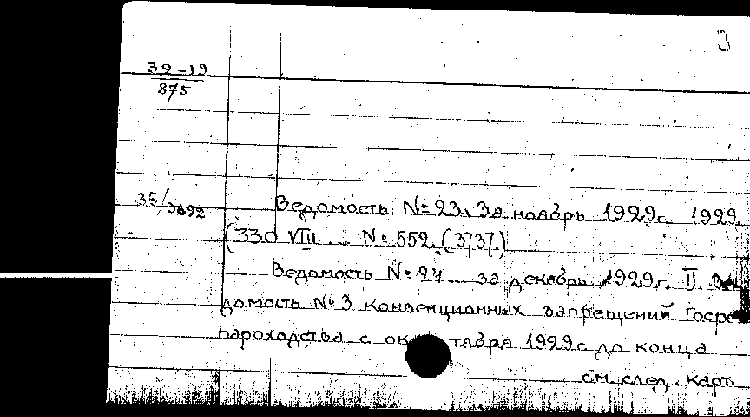 39-19
875
35/3692
Ведомость № 23, за ноябрь 1929г. 1929.
(330 VIII ... № 552. (3737)
Ведомость № 24 за декабрь 1929г. II
домость № 3 конвенционных запрещений Госре
пароходства с октября 1929г до конца
см. след. карт